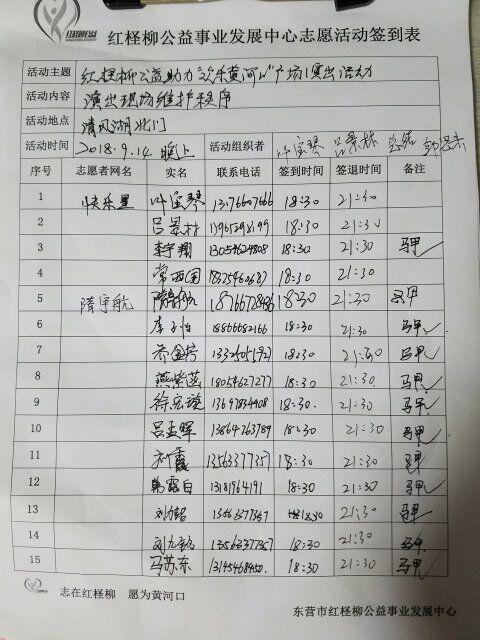 红柽柳公益事业发展中心志愿活动签到表
活动主题 红柽柳公益助力"欢乐黄河口"广场演出活动
活动内容 演出现场维护秩序
活动地点 清风湖北门
活动时间 2018.9.14 晚上 活动组织者 叶宝琴 吕景林
序号 志愿者网名 实名 联系电话 签到时间 签退时间 备注
1 快乐星 叶宝琴 13176607666 18:30 21:30
2 吕景林 18:30 21:30
3 李宇翔 13054624808 18:30 21:30 马甲
4 常西国 18:30 21:30
5 隋宇航 18:30 21:30 马甲
6 18:30 21:30 马甲
7 18:30 21:30 马甲
8 燕紫菡 18054627277 18:30 21:30 马甲
9 徐宏璇 18:30 21:30 马甲
10 吕孟晖 13864763789 18:30 21:30 马甲
11 刘霞 13563377357 18:30 21:30 马甲
12 韩露白 13181964191 18:30 21:30 马甲
13 13563377357 18:30 21:30 马甲
14 13563377357 18:30 21:30 马甲
15 马苏东 18:30 21:30 马甲
志在红柽柳 愿为黄河口
东营市红柽柳公益事业发展中心